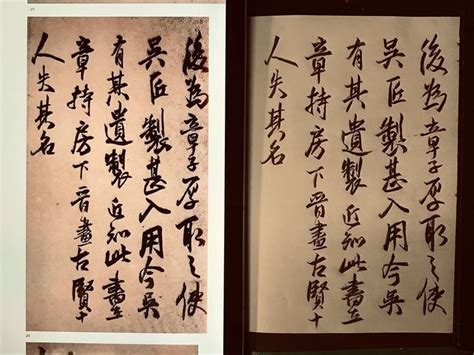 後為章子厚取之使
吳匠製甚入用今吳
有其遺製近知此畫在
章持房下晉畫古賢十
人失其名
後為章子厚取之使
吳匠製甚入用今吳
有其遺製近知此畫在
章持房下晉畫古賢十
人失其名